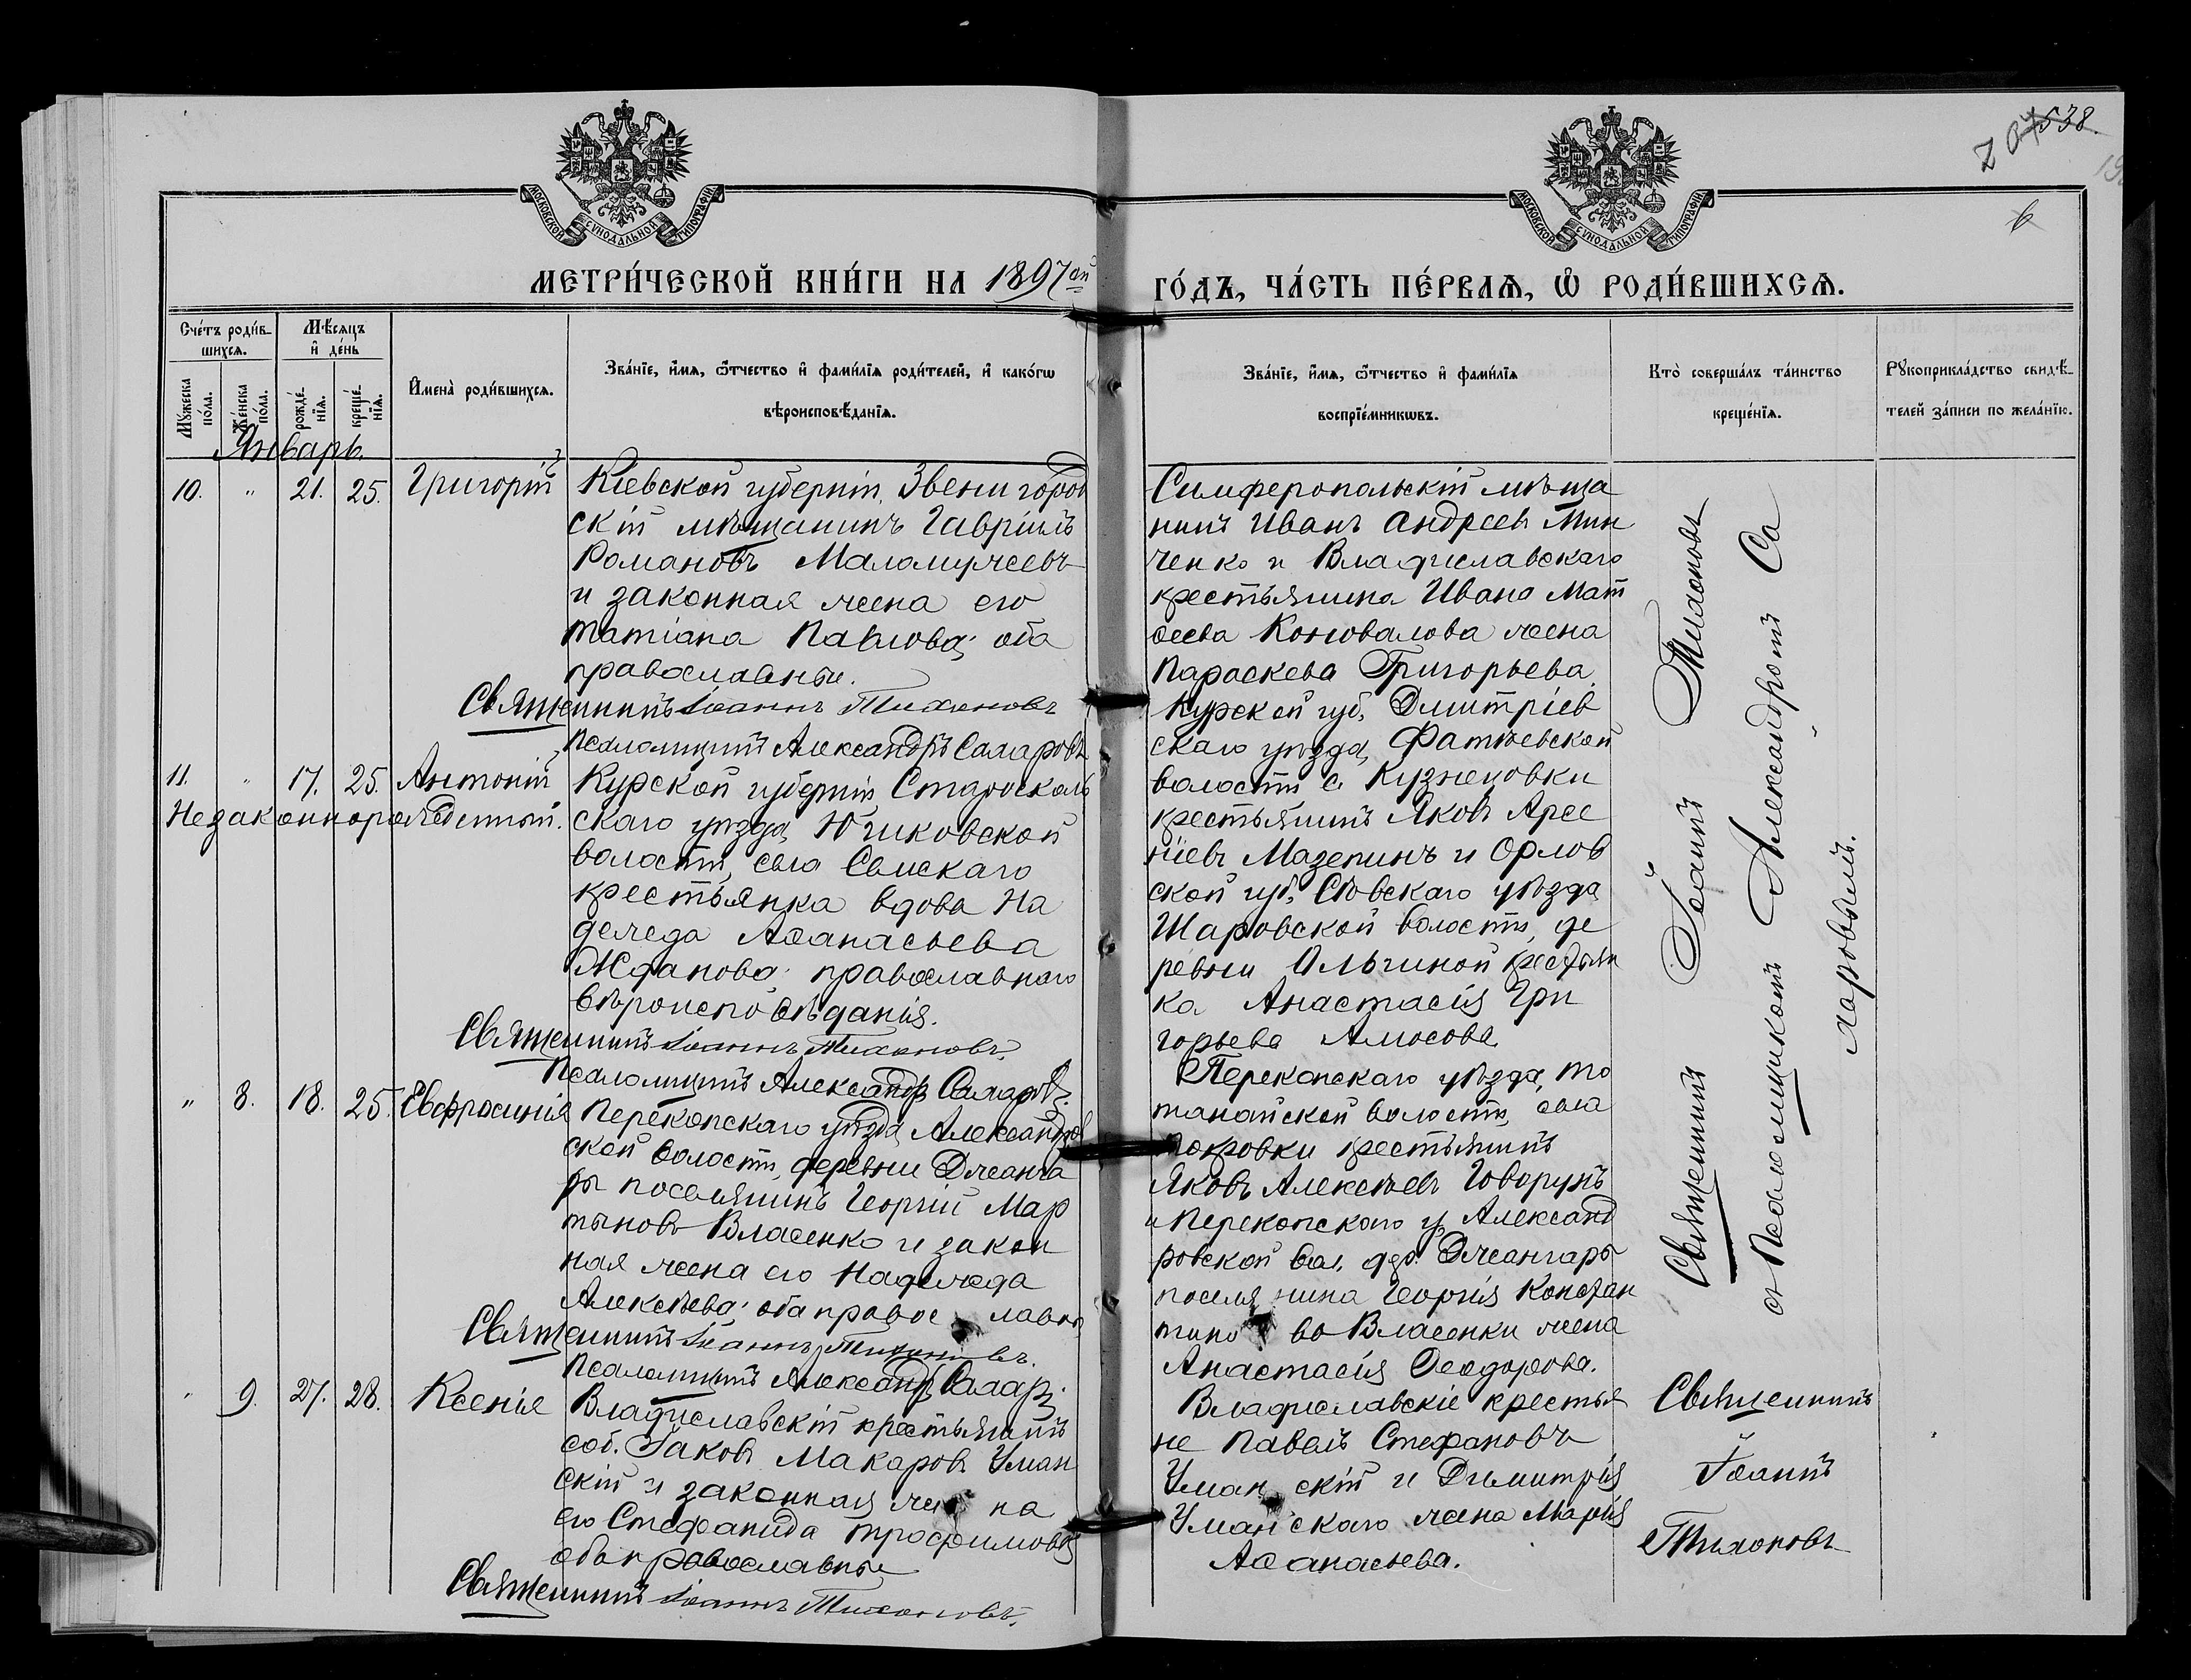 538.
6
МОСКОВСКОЙ СѴНОДАЛЬНОЙ ТИПОГРАФІИ
МОСКОВСКОЙ СѴНОДАЛЬНОЙ ТИПОГРАФІИ
МЕТРИ́ЧЕСКОЙ КНИ́ГИ НА 1897ой ГО́ДЪ, ЧА́СТЬ ПЕ́РВАѦ, Ѡ҆ РОДИ́ВШИХСѦ.
Сче́тъ роди́в-
шихсѧ.
Мꙋжеска
по́ла.
Же́нска
по́ла.
Мѣ́сѧцъ
и҆ де́нь
рожде́-
нїѧ.
креще́-
нїѧ.
И҆мена̀ роди́вшихсѧ.
Зва́нїе, и҆́мѧ, ѻ҆́тчество и҆ фами́лїѧ роди́телей, и҆ како́гѡ
вѣроисповѣ́данїѧ.
Зва́нїе, и҆́мѧ, ѻ҆́тчество и҆ фами́лїѧ
воспрїе́мникѡвъ.
Кто̀ соверша́лъ та́инство
креще́нїѧ.
Рꙋкоприкла́дство свидѣ́-
телей за́писи по жела́нїю.
Январь.
10. " 21. 25. Григорій
Кіевской губерніи, Звенигород
скій мѣщанинъ Гавріилъ
Романовъ Маломужевъ
и законная жена его
Татіана Павлова; оба
православные.
Священникъ Іоаннъ Тихоновъ
Псаломщикъ Александръ Самаровъ
Симферопольскій мѣща
нинъ Иванъ Андреевъ Мин
ченко и Владиславскаго
крестьянина Ивана Мат
ѳеева Коновалова жена
Параскева Григорьева.
11. " 17. 25. Антоній
Незаконнорожденный.
Курской губерніи, Старооколь
скаго уѣзда, Юшковской
волости, села
крестьянка вдова На
дежда Аѳанасьева
Жданова; православнаго
вѣроисповѣданія.
Священникъ Іоаннъ Тихоновъ.
Псаломщикъ Александръ Самаровъ.
Курской губ. Дмитріев
скаго уѣзда, Фатѣевской
волости с. Кузнецовки
крестьянинъ Яковъ Арсе
ніевъ Мазепинъ и Орлов
ской губ. Сѣвскаго уѣзда
Шаровской волости, де
ревни Ольгиной крестьян
ка Анастасія Гри
горьева Амосова.
" 8. 18. 25. Евфросинія
Перекопскаго уѣзда, Александров
ской волости, деревни Джанга
ры поселянинъ Георгій Мар
тыновъ Власенко и закон
ная жена его Надежда
Алексѣева; оба православн
Священникъ Іоаннъ Тихоновъ.
Псаломщикъ Александръ Самар.
Перекопскаго уѣзда, То
танайской волости, села
Покровки крестьянинъ
Яковъ Алексѣевъ Говорунъ
и Перекопскаго у. Александ
ровской вол. дер. Джангары
поселянина Георгія Констан
тинова Власенки жена
Анастасія Ѳеодорова.
" 9. 27. 28. Ксенія
Владиславскій крестьянинъ
соб. Іаковъ Макаровъ Уман
скій и законная жена
его Стефанида Трофимова
оба православные
Священникъ Іоаннъ Тихоновъ.
Владиславскіе крестья
не Павелъ Стефановъ
Уманскій и Димитрія
Уманскаго жена Марія
Аѳанасьева.
Священникъ Іоаннъ Тихоновъ
съ Псаломщикомъ Александромъ Са
маровымъ.
Священникъ
Іоаннъ
Тихоновъ